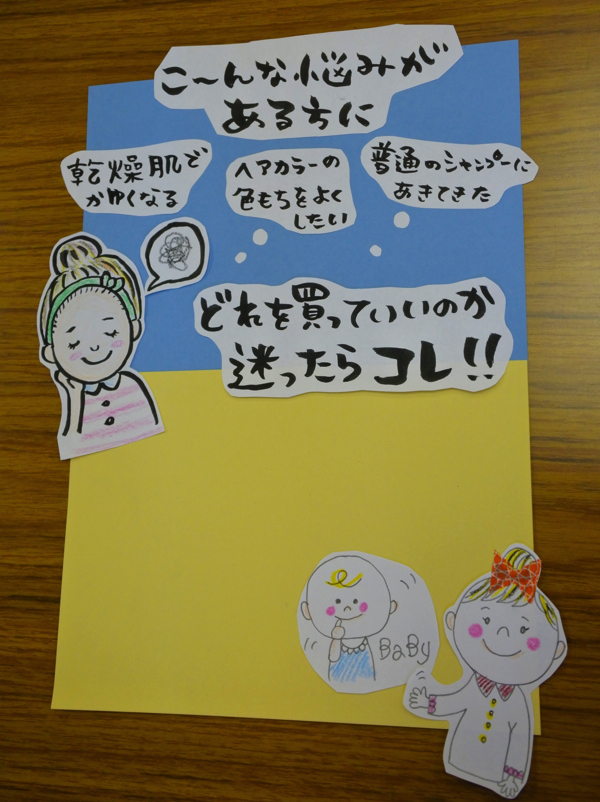 こ〜んな悩みが
ある方に
乾燥肌で
かゆくなる
ヘアカラーの
色もちをよく
したい
普通のシャンプーに
あきてきた
どれを買っていいのか
迷ったらコレ!!
BaBy